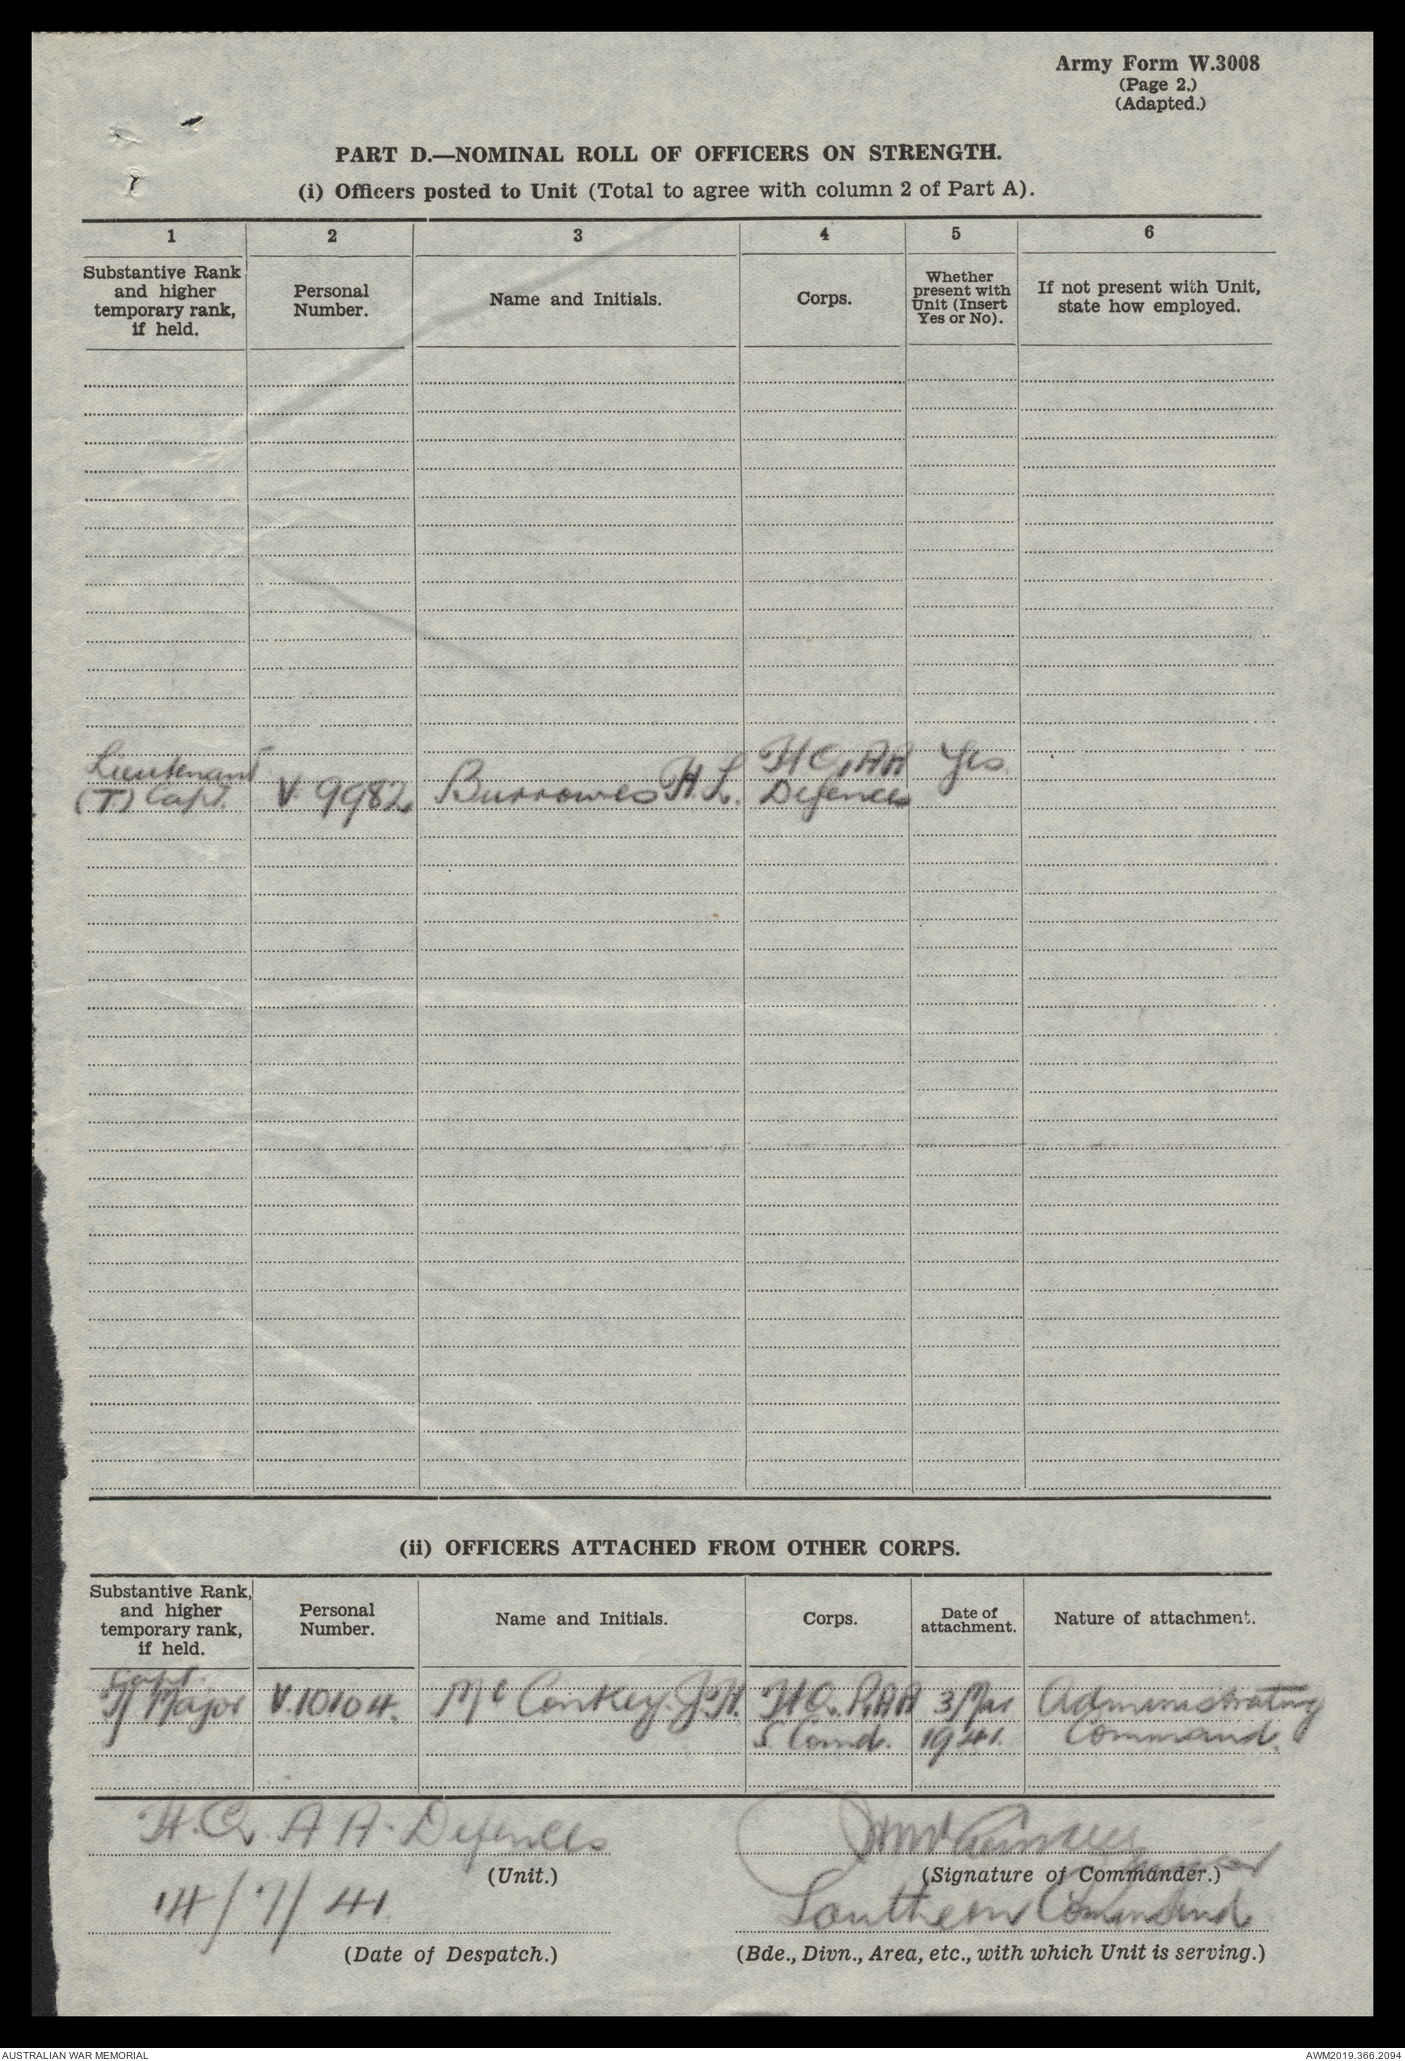 Army Form W.3008
(Page 2.)
(Adapted.)
PART D.—NOMINAL ROLL OF OFFICERS ON STRENGTH.
(i) Officers posted to Unit (Total to agree with column 2 of Part A).
1 2 3 4 5 6
Substantive Rank and higher temporary rank, if held.
Personal Number.
Name and Initials.
Corps.
Whether present with Unit (Insert Yes or No).
If not present with Unit, state how employed.
Lieutenant
(T) Capt. V. 9982 Burrowes H. L. Defences Yes
(ii) OFFICERS ATTACHED FROM OTHER CORPS.
Substantive Rank, and higher temporary rank, if held.
Personal Number.
Name and Initials.
Corps.
Date of attachment.
Nature of attachment.
Capt.
T/ Major V.10104. Mc Conkey. J. H. H.Q. 3 Mar Administrating
S. Comd. 1941. Command.
H.Q. A A. Defences
(Unit.)
(Signature of Commander.)
14/7/41
Southern Command
(Date of Despatch.)
(Bde., Divn., Area, etc., with which Unit is serving.)
AUSTRALIAN WAR MEMORIAL
AWM2019.366.2094